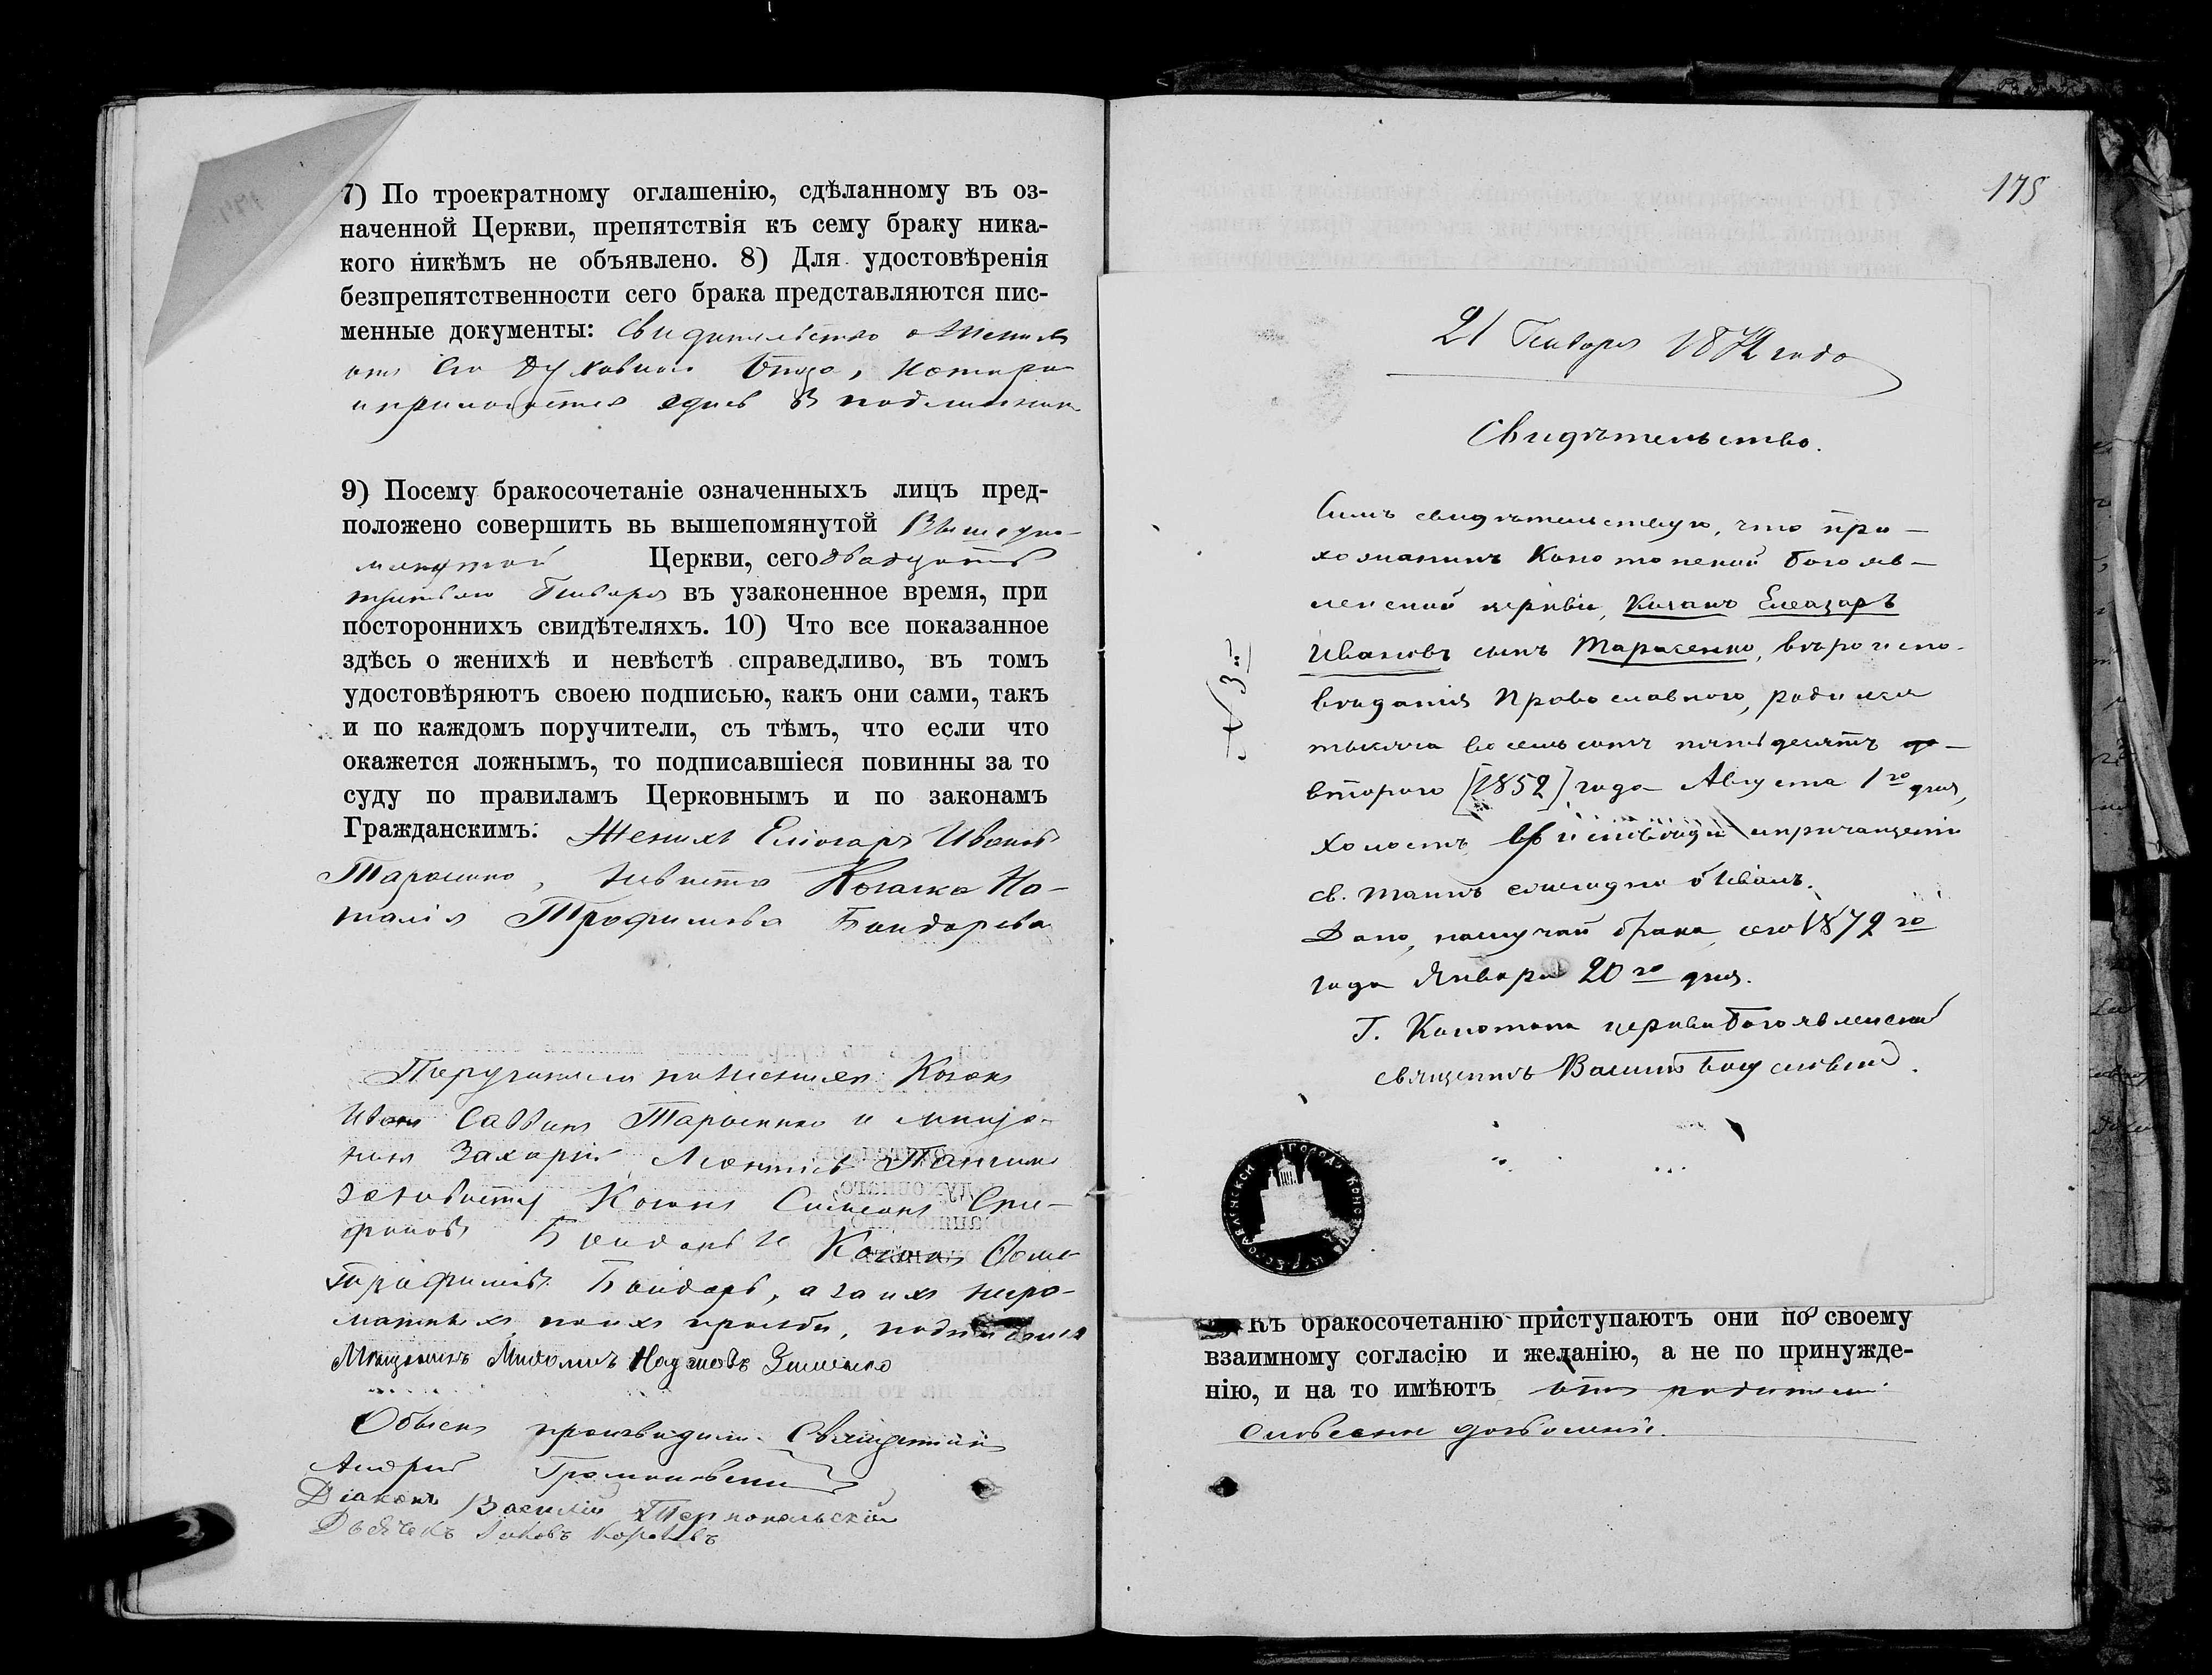 7) По троекратному оглашенію, сдѣланному въ оз-
наченной Церкви, препятствія къ сему браку ника-
кого никѣмъ не объявлено. 8) Для удостовѣренія
безпрепятственности сего брака представляются пис-
менные документы:
9) Посему бракосочетаніе означенныхъ лицъ пред-
положено совершить вь вышепомянутой Вышеупо-
мянутой Церкви, сего двадцать
Генваря въ узаконенное время, при
постороннихъ свидѣтеляхъ. 10) Что все показанное
здѣсь о женихѣ и невѣстѣ справедливо, въ томъ
удостовѣряютъ своею подписью, какъ они сами, такъ
и по каждомъ поручители, съ тѣмъ, что если что
окажется ложнымъ, то подписавшіеся повинны за то
суду по правиламъ Церковнымъ и по законамъ
Гражданскимъ: Женихъ Иванов
Тарасенко, невѣста Козачка На-
талія Трофимова Бондарева
Козакъ
Иванъ Саввинъ Тарасенко и мѣща-
нинъ Захарій Леонтіевъ
Козакъ Симеонъ
Бондарь и Козакъ
Трофимовъ Бондарь, а за ихъ негра-
мотныхъ, по ихъ прозьбѣ,
Мѣщанинъ Наумовъ
Обыскъ производили Священникъ
Андрей
Діаконъ Василій Тернопольскій
Дьячекъ Іаковъ
175
21 Генваря 1872 года
Свидѣтельство.
Симъ свидѣтельствую, что при-
хожанинъ Конотопской Богояв-
ленской церкви, Козакъ Елеазаръ
Ивановъ сынъ Тарасенко, вѣроиспо-
вѣданія Православного, родился
тысяча восемь сотъ пятьдесятъ
второго [1852] года Августа 1го дня,
холостъ, въ исповѣди и причащеніи
св. таинъ ежегодно бывалъ.
Дано, на случай брака, сего 1872го
года Января 20го дня.
Г. Конотопа церкви Богоявленской
священникъ
№ 3й
Къ бракосочетанію приступаютъ они по своему
взаимному согласію и желанію, а не по принужде-
нію, и на то имѣютъ отъ родителей
словесное дозволеніе.